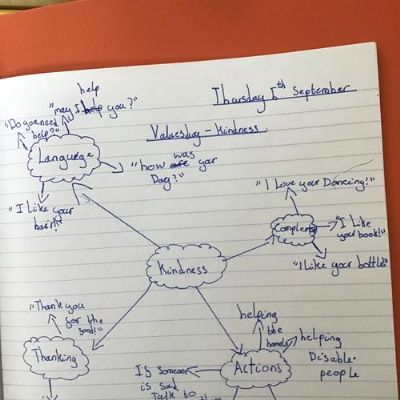 Thursday 6th September
Valuesday - Kindness
help
"may I help you?"
"Do you need
help?"
Language
was
"how are your
Day?"
"I Like your
hair!"
"I Love your Dancing!"
"I Like
your book!"
"I Like your bottle"
Kindness
"Thank you
for the
food!"
Thanking
helping
the
helping
Disable
people
Actions
If someone
is sad
Talk to